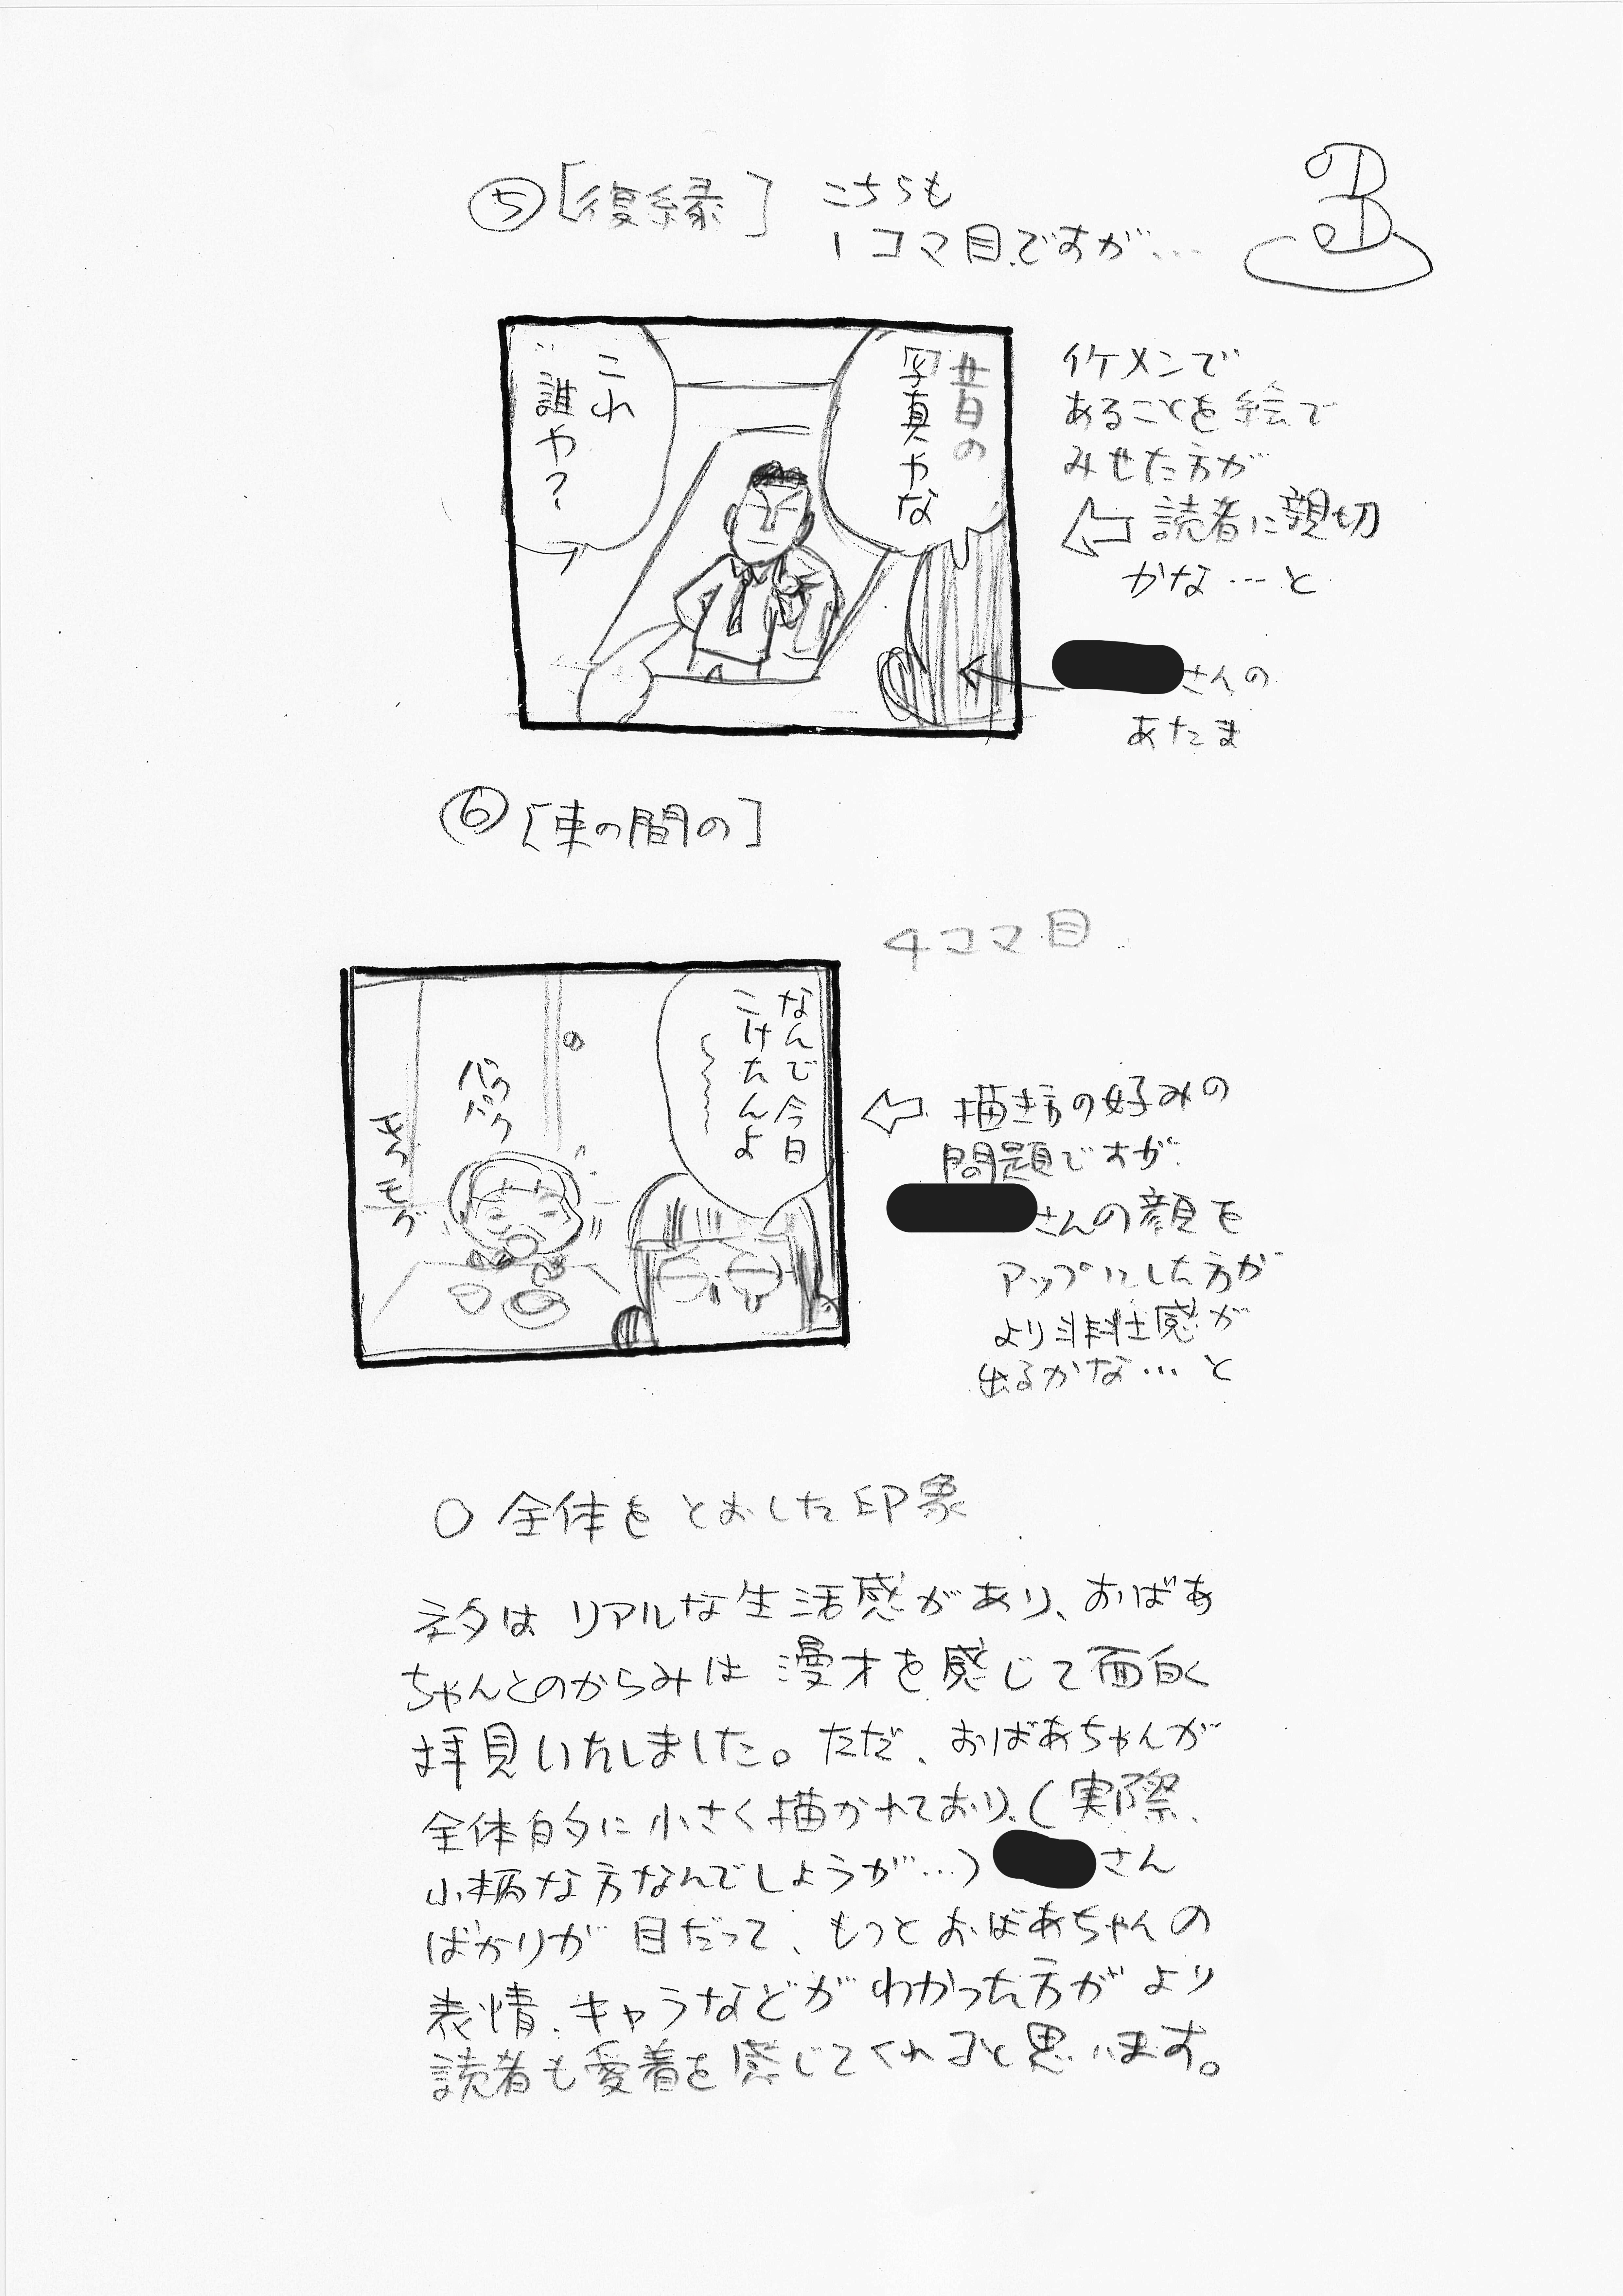 ⑤[復縁]
こちらも
1コマ目ですが…
昔の
写真やな
これ
誰や?
イケメンで
あることを絵で
みせた方が
読者に親切
かな…と
さんの
あたま
⑥[束の間の]
4コマ目
なんで今日
こけたんよ
パク
パク
モグ
モグ
描き方の好みの
問題ですが
さんの顔を
アップにした方が
より悲壮感が
出るかな…と
○全体をとおした印象
ネタはリアルな生活感があり、おばあ
ちゃんとのからみは漫才を感じて面白く
拝見いたしました。ただ、おばあちゃんが
全体的に小さく描かれており、(実際、
小柄な方なんでしょうが…)さん
ばかりが目だって、もっとおばあちゃんの
表情、キャラなどがわかった方がより
読者も愛着を感じてくれると思います。